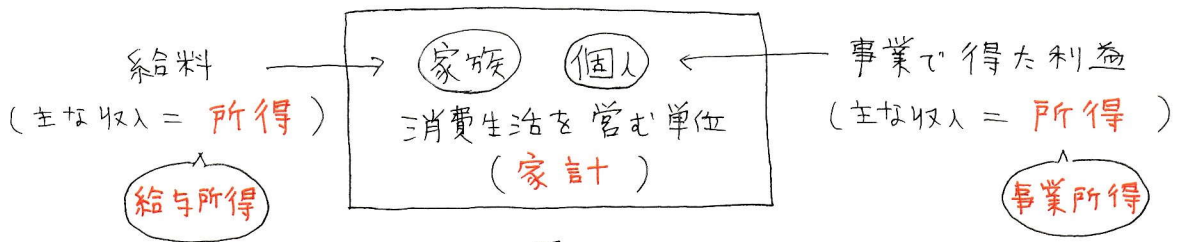 給料
(主な収入 = 所得)
給与所得
家族 個人
消費生活を営む単位
(家計)
事業で得た利益
(主な収入 = 所得)
事業所得